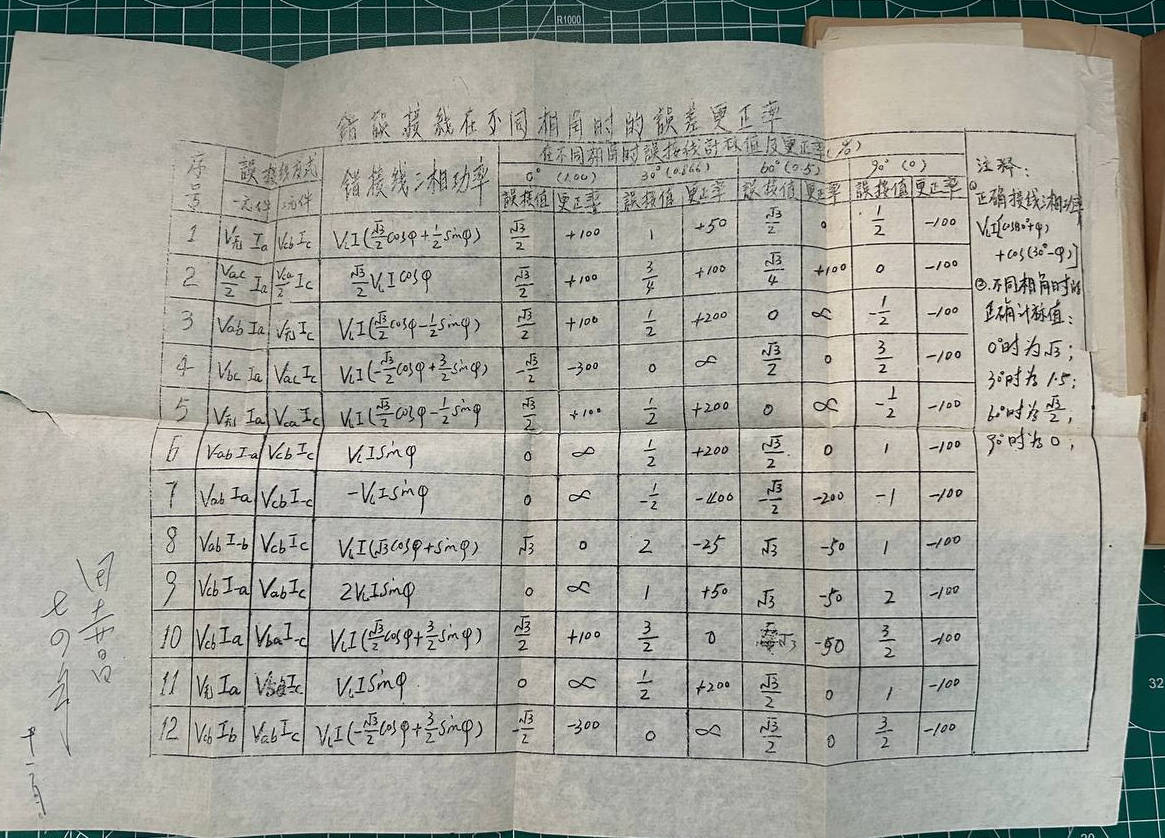 R1000
错误接线在不同相角时的误差更正率
序号 誤接线方式 错接线三相功率 在不同相角时誤接线計秋值及更正率(%) 
一元件 二元件 0°(1.00) 30°(0.866) 60°(0.5) 90°(0)
誤接值 更正率 誤接值 更正率 誤接值 更正率 誤接值 更正率
1 V无 Ia Vcb Ic VLI(√3/2cosφ+1/2sinφ) √3/2 +100 1 +50 √3/2 0 1/2 -100
2 Vac/2 Ia Vca/2 Ic √3/2VLIcosφ √3/2 +100 3/4 +100 √3/4 +100 0 -100
3 Vab Ia V无 Ic VLI(√3/2cosφ-1/2sinφ) √3/2 +100 1/2 +200 0 ∞ -1/2 -100
4 Vbc Ia Vac Ic VLI(-√3/2cosφ+3/2sinφ) -√3/2 -300 0 ∞ √3/2 0 3/2 -100
5 V无 Ia Vca Ic VLI(√3/2cosφ-1/2sinφ √3/2 +100 1/2 +200 0 ∞ -1/2 -100
6 Vab I-a Vcb Ic VLIsinφ 0 ∞ 1/2 +200 √3/2 0 1 -100
7 Vab Ia Vcb I-c -VLIsinφ 0 ∞ -1/2 -400 -√3/2 -200 -1 -100
8 Vab I-b Vcb Ic VLI(√3cosφ+sinφ) √3 0 2 -25 √3 -50 1 -100
9 Vcb I-a Vab Ic 2VLIsinφ 0 ∞ 1 +50 √3 -50 2 -100
10 Vcb Ia Vba I-c VLI(√3/2cosφ+3/2sinφ) √3/2 +100 3/2 0 √3 -50 3/2 -100
11 V无 Ia Ic VLIsinφ 0 ∞ 1/2 +200 √3/2 0 1 -100
12 Vcb Ib Vab Ic VLI(-√3/2cosφ+3/2sinφ) -√3/2 -300 0 ∞ √3/2 0 3/2 -100
注释:
①正确接线三相功率
VLI[cos30°+φ)
+cos(30°-φ)]
②.不同相角时的
正确计秋值:
0°时为√3;
30°时为1.5;
60°时为√3/2,
90°时为0,
七の年
十一月
32